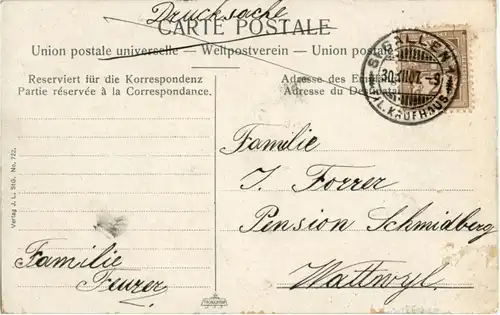 Drucksache
CARTE POSTALE
Union postale universelle — Weltpostverein — Union postale
Reserviert für die Korrespondenz
Partie réservée à la Correspondance.
Adresse des
Adresse du
ST. GALLEN
30.XII.07.-9
KAUFHAUS
Familie
J. Forrer
Pension Schmidberg
Wattwyl.
Familie
Feurer
Verlag J. L. StG. No. 722.